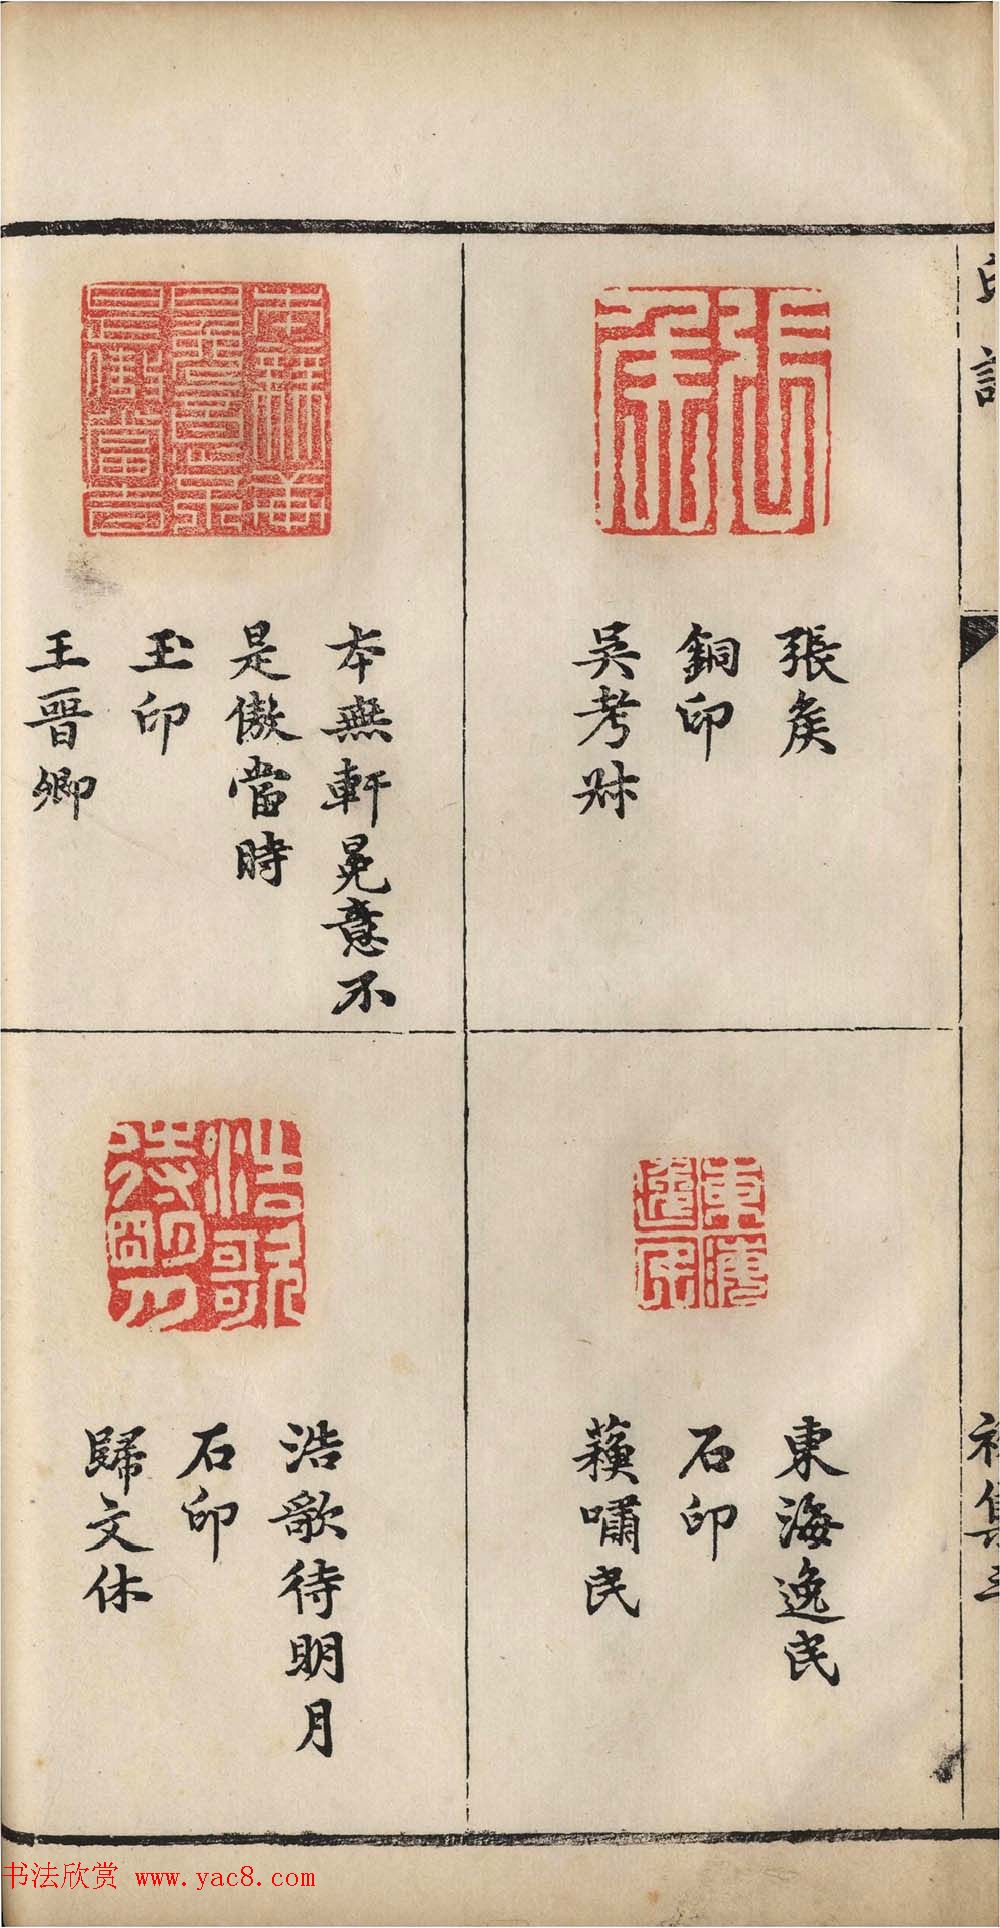 初集
張矦
銅印
吳考叔
東海逸民
石印
蘓嘯民
本無軒冕意不
是傲當時
玉印
王晉卿
浩歌待明月
石印
歸文休
书法欣赏 www.yac8.com